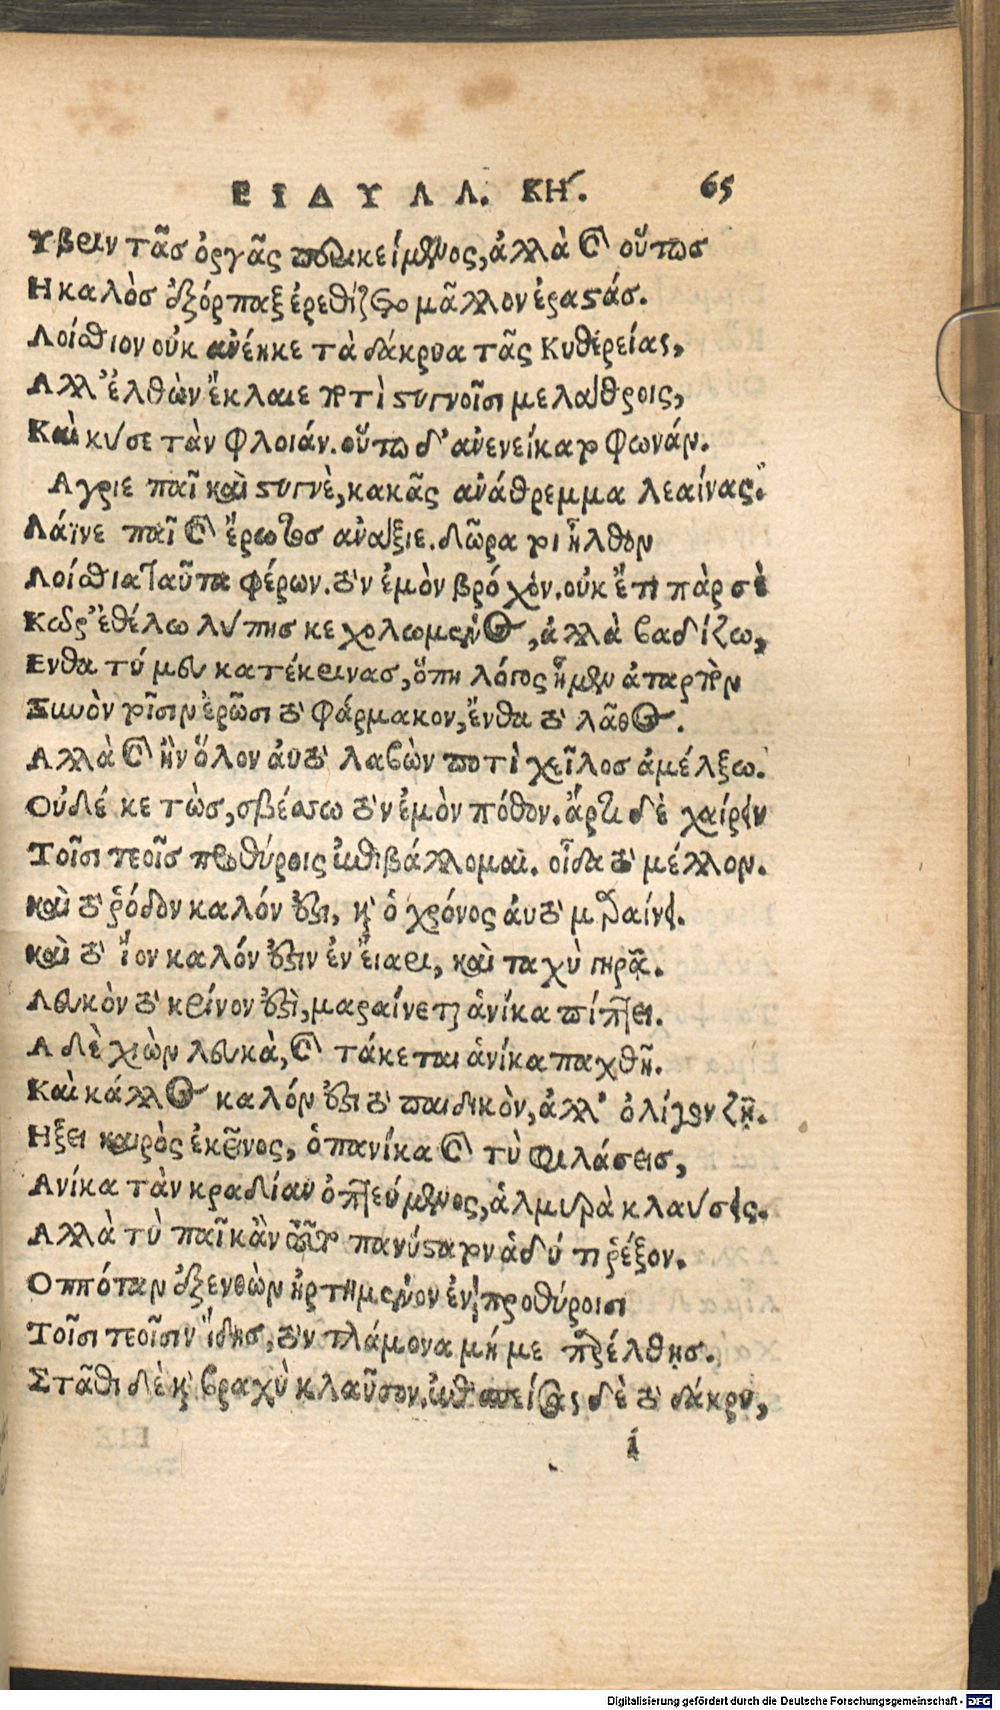 ΕΙΔΥΛΛ. ΚΗ. 65
Υβριν τᾶσ ὀργᾶς περικείμενος, ἀλλὰ καὶ οὕτως
Η καλὸσ ἐξόρπαξ ἐρεθίζετο μᾶλλον ἐραστάς.
Λοίσθιον οὐκ ἀνένικε τὰ δάκρυα τᾶς Κυθερείας,
Αλλ' ἐλθὼν ἔκλαιε ποτὶ στυγνοῖσι μελάθροις,
Καὶ κύσε τὰν φλοιάν. οὕτω δ' ἀνενείκατο φωνάν.
Αγριε παῖ καὶ στυγνὲ, κακᾶς ἀνάθρεμμα λεαίνας.
Λάϊνε παῖ καὶ ἔρωτος ἀνάξιε. δῶρά τοι ἦλθον
Λοίσθια ταῦτα φέρων. τὸν ἐμὸν βρόχον. οὐκ ἔτι γὰρ σὲ
Κῶρ' ἐθέλω λύπης κεχολωμένος, ἀλλὰ βαδίζω,
Ενθα τύ μευ κατέκρινας, ὅπη λόγος ἦμεν ἀταρπὸν
Ξυνὸν τοῖσιν ἐρῶσι τὸ φάρμακον, ἔνθα τὸ λᾶθος.
Αλλὰ καὶ ἢν ὅλον αὐτὸ λαβὼν ποτὶ χεῖλος ἀμέλξω.
Οὐδέ κε τὼς, σβέσσω τὸν ἐμὸν πόθον. ἄρτι δὲ χαίρειν
Τοῖσι τεοῖσ προθύροις ἐπιβάλλομαι. οἶδα τὸ μέλλον.
καὶ τὸ ῥόδον καλόν ἐστι, κὴ ὁ χρόνος αὐτὸ μαραίνει.
καὶ τὸ ἴον καλόν ἐστιν ἐν εἴαρι, καὶ ταχὺ γηρᾷ.
Λευκὸν τὸ κρίνον ἐστὶ, μαραίνεται ἁνίκα πίπτει.
Α δὲ χιὼν λευκὰ, καὶ τάκεται ἁνίκα παχθῇ.
Καὶ κάλλος καλόν ἐστι τὸ παιδικὸν, ἀλλ' ὀλίγον ζῇ.
Ηξει καιρὸς ἐκεῖνος, ὁπανίκα καὶ τὺ φιλάσεισ,
Ανίκα τὰν κραδίαν ὀπτεύμενος, ἁλμυρὰ κλαύσεις.
Αλλὰ τὺ παῖ κἂν τοῦτο πανύστατον ἁδύ τι ῥέξον.
Οππόταν ἐξενθὼν ἠρτημένον ἐν προθύροισι
Τοῖσι τεοῖσιν ἴδης, τὸν τλάμονα μή με παρέλθησ.
Στᾶθι δὲ κὴ βραχὺ κλαῦσον. ἐπισπείσας δὲ τὸ δάκρυ,
i
Digitalisierung gefördert durch die Deutsche Forschungsgemeinschaft - DFG